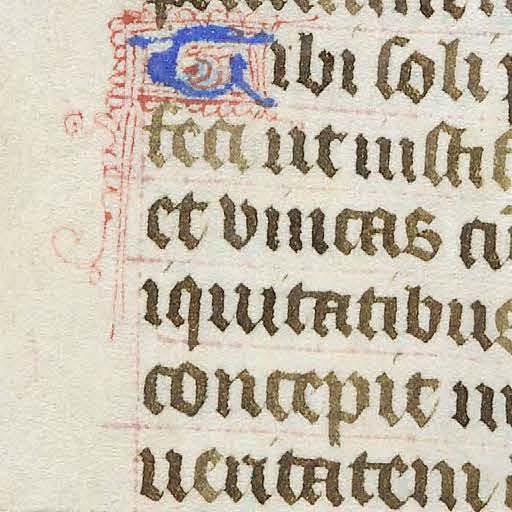 Tibi soli
feci ut iusti
et vincas cū
iquitatibus
concepit m
ueritatem